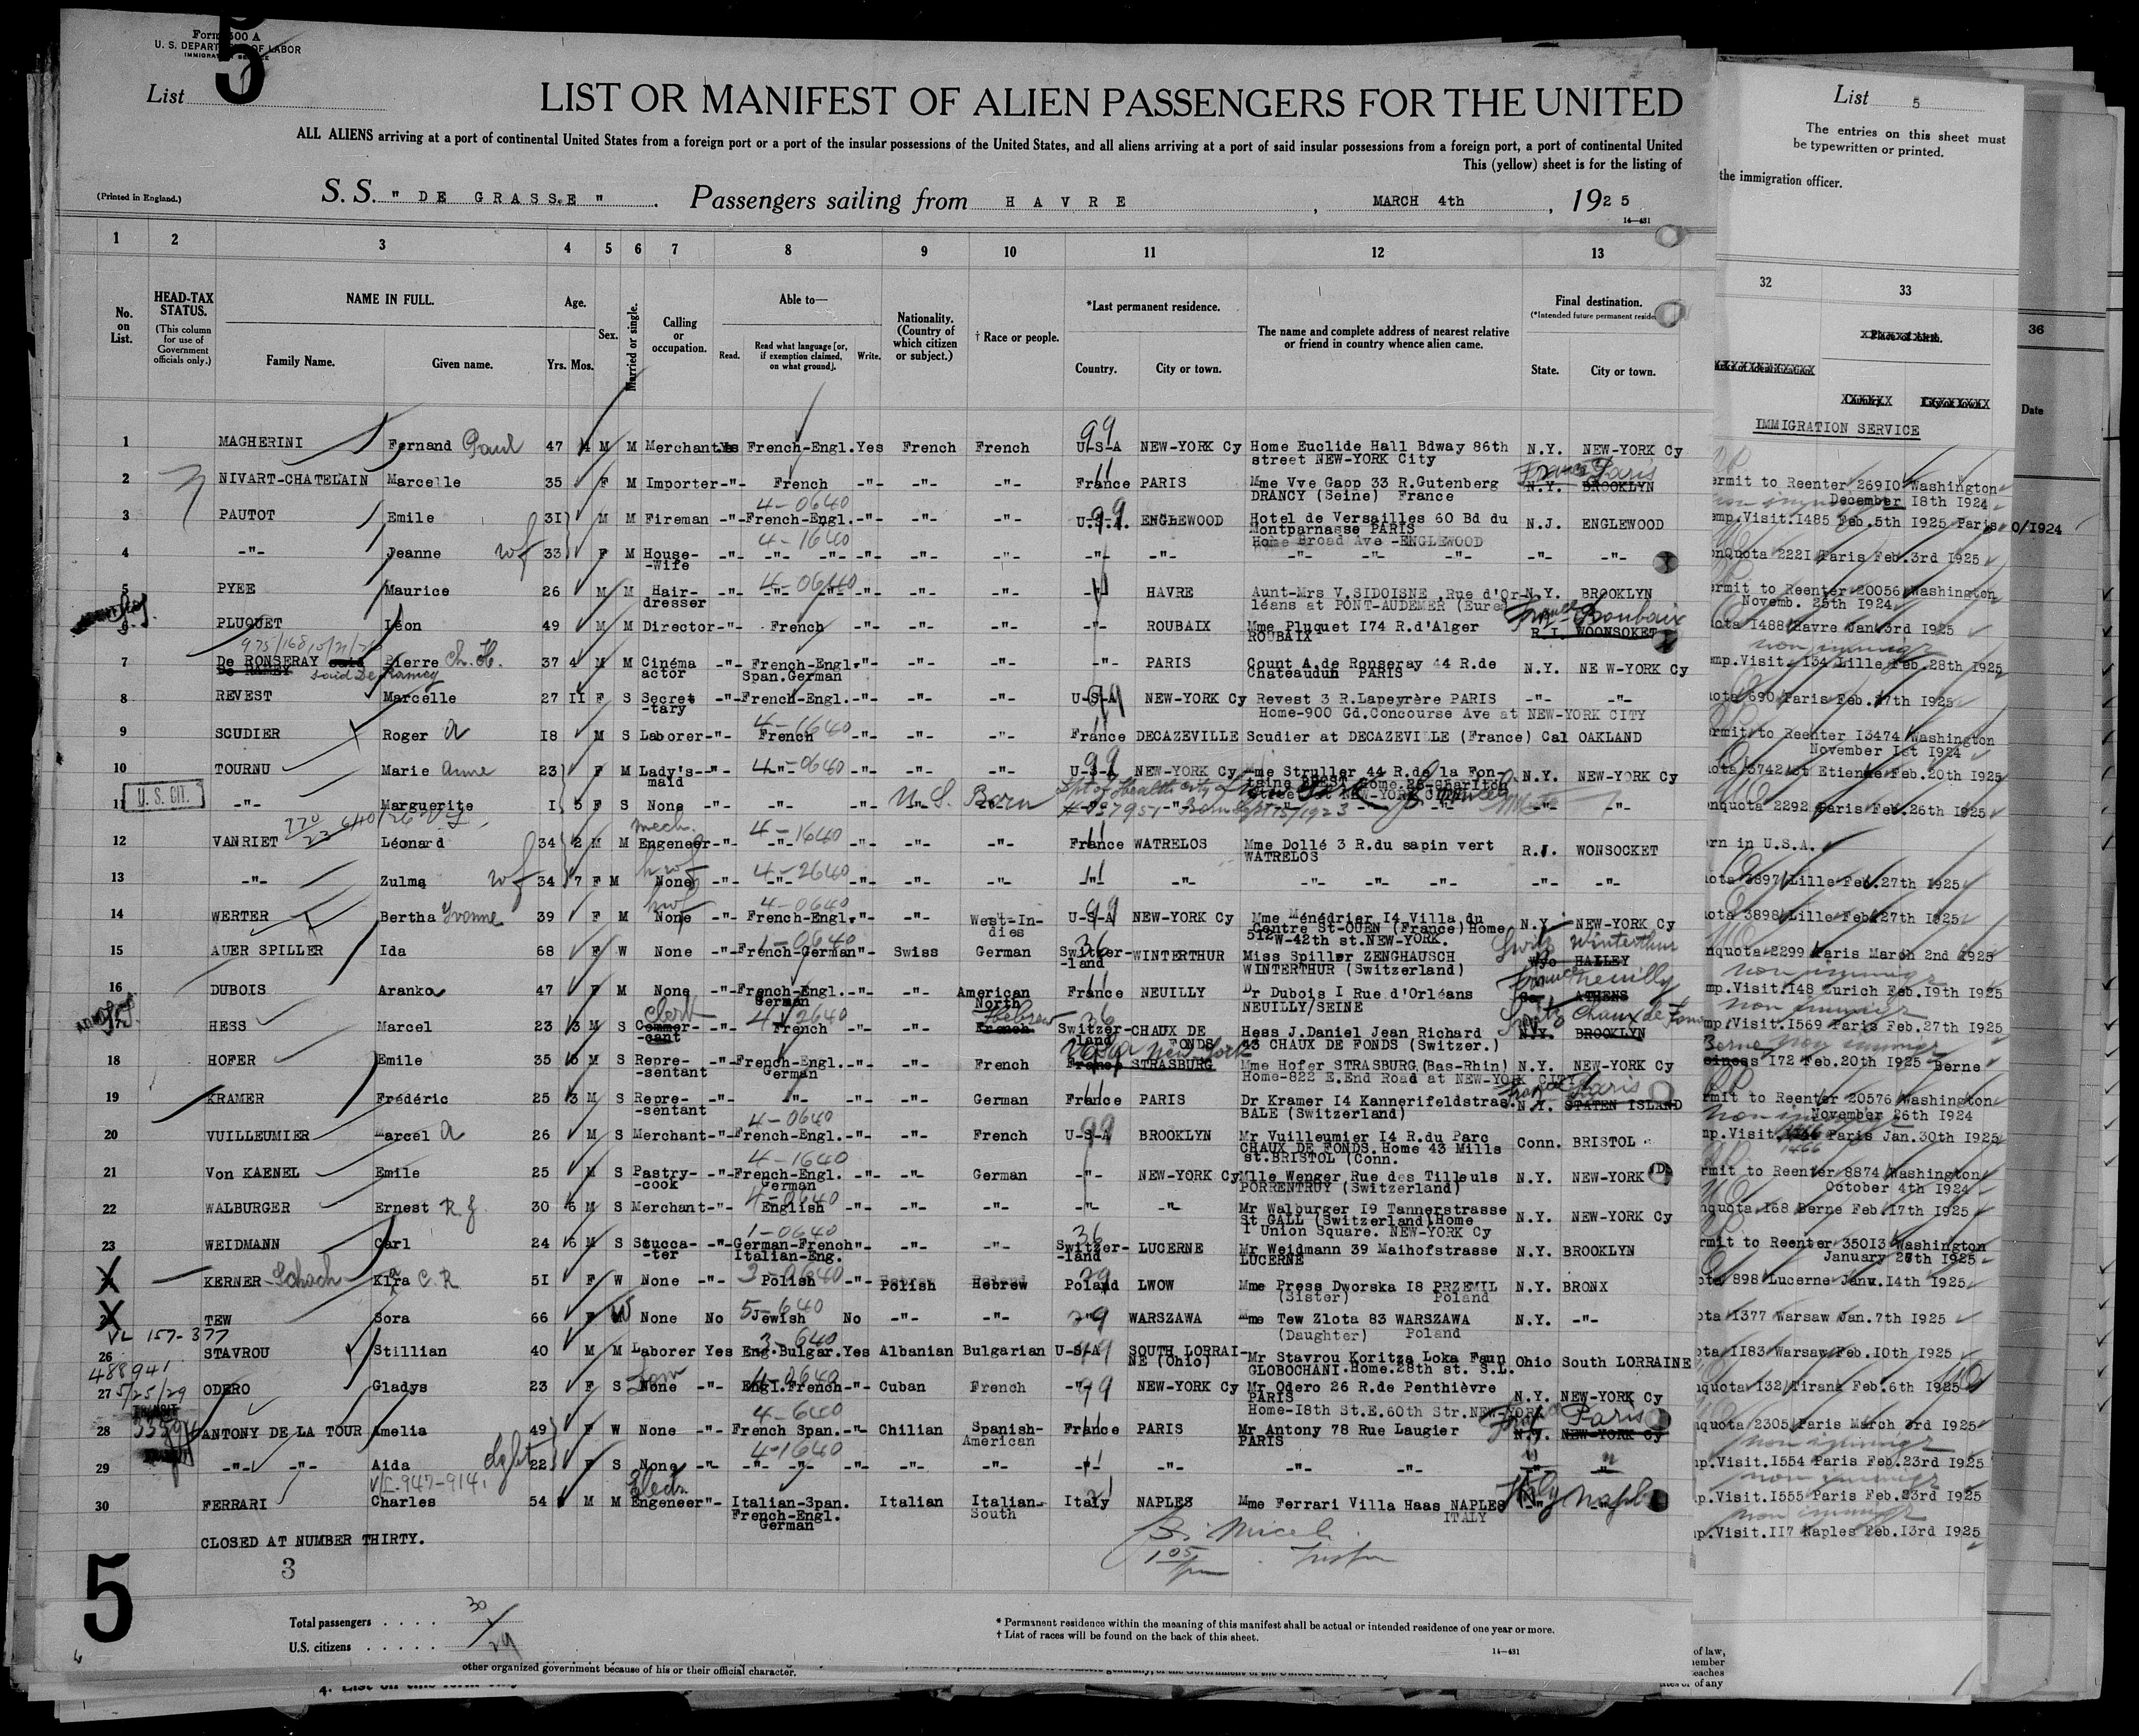 Form 500 A
U. S. DEPARTMENT OF LABOR
IMMIGRATION SERVICE
5
List
LIST OR MANIFEST OF ALIEN PASSENGERS FOR THE UNITED
ALL ALIENS arriving at a port of continental United States from a foreign port or a port of the insular possessions of the United States, and all aliens arriving at a port of said insular possessions from a foreign port, a port of continental United
This (yellow) sheet is for the listing of
(Printed in England.)
S. S. " DE GRASSE " . Passengers sailing from HAVRE , MARCH 4th , 1925
14—431
1 2 3 4 5 6 7 8 9 10 11 12 13
No. on List.
HEAD-TAX STATUS.
(This column for use of Government officials only.)
NAME IN FULL.
Family Name. Given name.
Age.
Yrs. Mos.
Sex.
Married or single.
Calling or occupation.
Able to—
Read. Read what language [or, if exemption claimed, on what ground]. Write.
Nationality. (Country of which citizen or subject.)
† Race or people.
*Last permanent residence.
Country. City or town.
The name and complete address of nearest relative or friend in country whence alien came.
Final destination.
State. City or town.
1 MAGHERINI Fernand Paul 47 4 M M Merchant Yes French-Engl. Yes French French U-S-A NEW-YORK Cy Home Euclide Hall Bdway 86th street NEW-YORK City N.Y. NEW-YORK Cy
2 NIVART-CHATELAIN Marcelle 35 F M Importer -"- French -"- -"- -"- France PARIS Mme Vve Gapp 33 R.Gutenberg DRANCY (Seine) France N.Y. BROOKLYN France Paris
4-0640
3 PAUTOT Emile 3I M M Fireman -"- French-Engl. -"- -"- -"- U.S.A. ENGLEWOOD Hotel de Versailles 60 Bd du Montparnasse PARIS Home Broad Ave -ENGLEWOOD N.J. ENGLEWOOD
4-1640
4 -"- Jeanne wf 33 F M House-wife -"- -"- -"- -"- -"- -"- -"- -"- -"- -"- -"- -"- -"-
4-0640
5 PYEE Maurice 26 M M Hair-dresser -"- -"- -"- -"- -"- -"- -"- HAVRE Aunt-Mrs V.SIDOISNE ,Rue d'Or-léans at PONT-AUDEMER (Eure) N.Y. BROOKLYN
PLUQUET Léon 49 M M Director -"- French -"- -"- -"- -"- ROUBAIX Mme Pluquet I74 R.d'Alger ROUBAIX R.I. WOONSOCKET France Roubaix
7 De RONSERAY said De RAMEY said De Ramey Pierre Ch. H. 37 4 M M Cinéma actor -"- French-Engl. Span.German -"- -"- -"- -"- PARIS Count A.de Ronseray 44 R.de Chateaudun PARIS N.Y. NEW-YORK Cy
8 REVEST Marcelle 27 II F S Secret-tary -"- French-Engl. -"- -"- -"- U-S-A NEW-YORK Cy Revest 3 R.Lapeyrère PARIS Home-900 Gd.Concourse Ave at NEW-YORK CITY -"- -"-
4-1640
9 SCUDIER Roger A I8 M S Laborer -"- French -"- -"- -"- France DECAZEVILLE Scudier at DECAZEVILLE (France) Cal OAKLAND
4-0640
10 TOURNU Marie Anne 23 F M Lady's-maid -"- -"- -"- -"- -"- U-S-A NEW-YORK Cy Mme Struller 44 R.de la Fon- N.Y. NEW-YORK Cy
U. S. CIT.
11 -"- Marguerite I 5 F S None -"- -"- -"- U.S. Born Born Sept 15/1923 -"- -"-
4-1640
12 VANRIET Léonard 34 2 M M mech. Engeneer -"- -"- -"- -"- -"- France WATRELOS Mme Dollé 3 R.du sapin vert WATRELOS R.I. WONSOCKET
4-2640
13 -"- Zulma wf 34 7 F M None hwf -"- -"- -"- -"- -"- -"- -"- -"- -"- -"- -"- -"-
4-0640
14 WERTER Bertha Yvonne 39 F M None hwf -"- French-Engl. -"- -"- West-In-dies U-S-A NEW-YORK Cy Mme Ménédrier I4 Villa du Centre St-OUEN (France) Home 512 W-42th st.NEW-YORK. N.Y. NEW-YORK Cy
1-0640
15 AUER SPILLER Ida 68 F W None -"- French-German -"- Swiss German Switzer-land WINTERTHUR Miss Spiller ZENGHAUSCH WINTERTHUR (Switzerland) Wyo HALLEY Switz Winterthur
16 DUBOIS Aranka 47 F M None -"- French-Engl. German -"- -"- American North France NEUILLY Dr Dubois I Rue d'Orléans NEUILLY/SEINE Ga. ATHENS France Neuilly
4-2640
HESS Marcel 23 3 M S Commer-cant Clerk -"- French -"- -"- French Hebrew Switzer-land CHAUX DE FONDS Hess J.Daniel Jean Richard 43 CHAUX DE FONDS (Switzer.) N.Y. BROOKLYN Switz Chaux de Fonds
18 HOFER Emile 35 6 M S Repre-sentant -"- French-Engl. German -"- -"- French France STRASBURG New York Mme Hofer STRASBURG (Bas-Rhin) Home-822 E.End Road at NEW-YORK CITY N.Y. NEW-YORK Cy
19 KRAMER Frédéric 25 3 M S Repre-sentant -"- -"- -"- -"- German France PARIS Dr Kramer I4 Kannerifeldstras. BALE (Switzerland) N.Y. STATEN ISLAND France Paris
4-0640
20 VUILLEUMIER Marcel A 26 M S Merchant -"- French-Engl. -"- -"- French U-S-A BROOKLYN Mr Vuilleumier I4 R.du Parc CHAUX DE FONDS.Home 43 Mills st.BRISTOL (Conn. Conn. BRISTOL
4-1640
21 Von KAENEL Emile 25 M S Pastry-cook -"- French-Engl. German -"- -"- German -"- NEW-YORK Cy Mlle Wenger Rue des Tilleuls PORRENTRUY (Switzerland) N.Y. NEW-YORK
4-0640
22 WALBURGER Ernest R.J. 30 6 M S Merchant -"- English -"- -"- -"- -"- -"- Mr Walburger I9 Tannerstrasse St GALL (Switzerland) Home I Union Square. NEW-YORK Cy N.Y. NEW-YORK Cy
1-0640
23 WEIDMANN Carl 24 6 M S Stucca-ter -"- German-French Italian-Eng. -"- -"- -"- Switzer-land LUCERNE Mr Weidmann 39 Maihofstrasse LUCERNE N.Y. BROOKLYN
KERNER-Schach Klra C.R 5I F W None -"- Polish -"- Polish Hebrew Poland LWOW Mme Press Dworska I8 PRZEMIL (Sister) Poland N.Y. BRONX
5-640
TEW Sora 66 F W None No Jewish No -"- -"- -"- WARSZAWA Mme Tew Zlota 83 WARSZAWA (Daughter) Poland N.Y. -"-
VL 157-377
3-640
26 STAVROU Stillian 40 M M Laborer Yes Eng.Bulgar. Yes Albanian Bulgarian U-S-A SOUTH LORRAI-NE (Ohio) Mr Stavrou Koritza Loka Faun GLOBOCHANI.Home.28th st. S.L. Ohio South LORRAINE
488941
5/25/29
27 ODERO Gladys 23 F S None -"- Engl.French -"- Cuban French -"- NEW-YORK Cy Mr Odero 26 R.de Penthièvre PARIS Home-I8th St.E.60th Str.NEW-YORK N.Y. NEW-YORK Cy
4-640
28 ANTONY DE LA TOUR Amelia 49 F W None -"- French Span. -"- Chilian Spanish-American France PARIS Mr Antony 78 Rue Laugier PARIS N.Y. NEW-YORK Cy Paris
4-1640
29 -"- -"- Aida dght 22 F S None -"- -"- -"- -"- -"- -"- -"- -"- -"- -"- -"-
VL-947-914
30 FERRARI Charles 54 M M Elect. Engeneer -"- Italian-Span. French-Engl. German Italian Italian-South Italy NAPLES Mme Ferrari Villa Haas NAPLES ITALY Italy Naples
CLOSED AT NUMBER THIRTY.
3
5
Total passengers . . . . 30
U.S. citizens . . . . .
* Permanent residence within the meaning of this manifest shall be actual or intended residence of one year or more.
† List of races will be found on the back of this sheet.
14—431
other organized government because of his or their official character.
List 5
The entries on this sheet must
be typewritten or printed.
the immigration officer.
32 33 36
Date
IMMIGRATION SERVICE
ermit to Reenter 269I0 Washington
December I8th I924
emp.Visit.I485 Feb.5th I925 Paris
0/1924
onQuota 222I Paris Feb.3rd I925
ermit to Reenter 20056 Washington
Novemb. 25th I924
uota I488 Havre Jan.3rd I925
non immigr
emp.Visit. I34 Lille Feb.28th I925
uota 690 Paris Feb.I7th I925
ermit to Reenter I3474 Washington
November Ist I924
uota 3742 St Etienne Feb.20th I925
onquota 2292 Paris Feb.26th I925
orn in U.S.A.
uota 3897 Lille Feb.27th I925
uota 3898 Lille Feb.27th I925
nquota 2299 Paris March 2nd I925
non immigr
mp.Visit.I48 Zurich Feb.I9th I925
non immigr
mp.Visit.I569 Paris Feb.27th I925
Berne non immigr
siness I72 Feb.20th I925 Berne
rmit to Reenter 20576 Washington
November 26th I924
mp.Visit 1466 Paris Jan.30th I925
rmit to Reenter 8874 Washington
October 4th I924
nquota I68 Berne Feb.I7th I925
rmit to Reenter 350I3 Washington
January 28th I925
ota 898 Lucerne Janv.I4th I925
ota I377 Warsaw Jan.7th I925
ota II83 Warsaw Feb.I0th I925
nquota I32 Tirana Feb.6th I925
nquota 2305 Paris March 3rd I925
non immigr
mp.Visit.I554 Paris Feb.23rd I925
non immigr
p.Visit.I555 Paris Feb.23rd I925
non immigr
p.Visit.II7 Naples Feb.I3rd I925
of law,